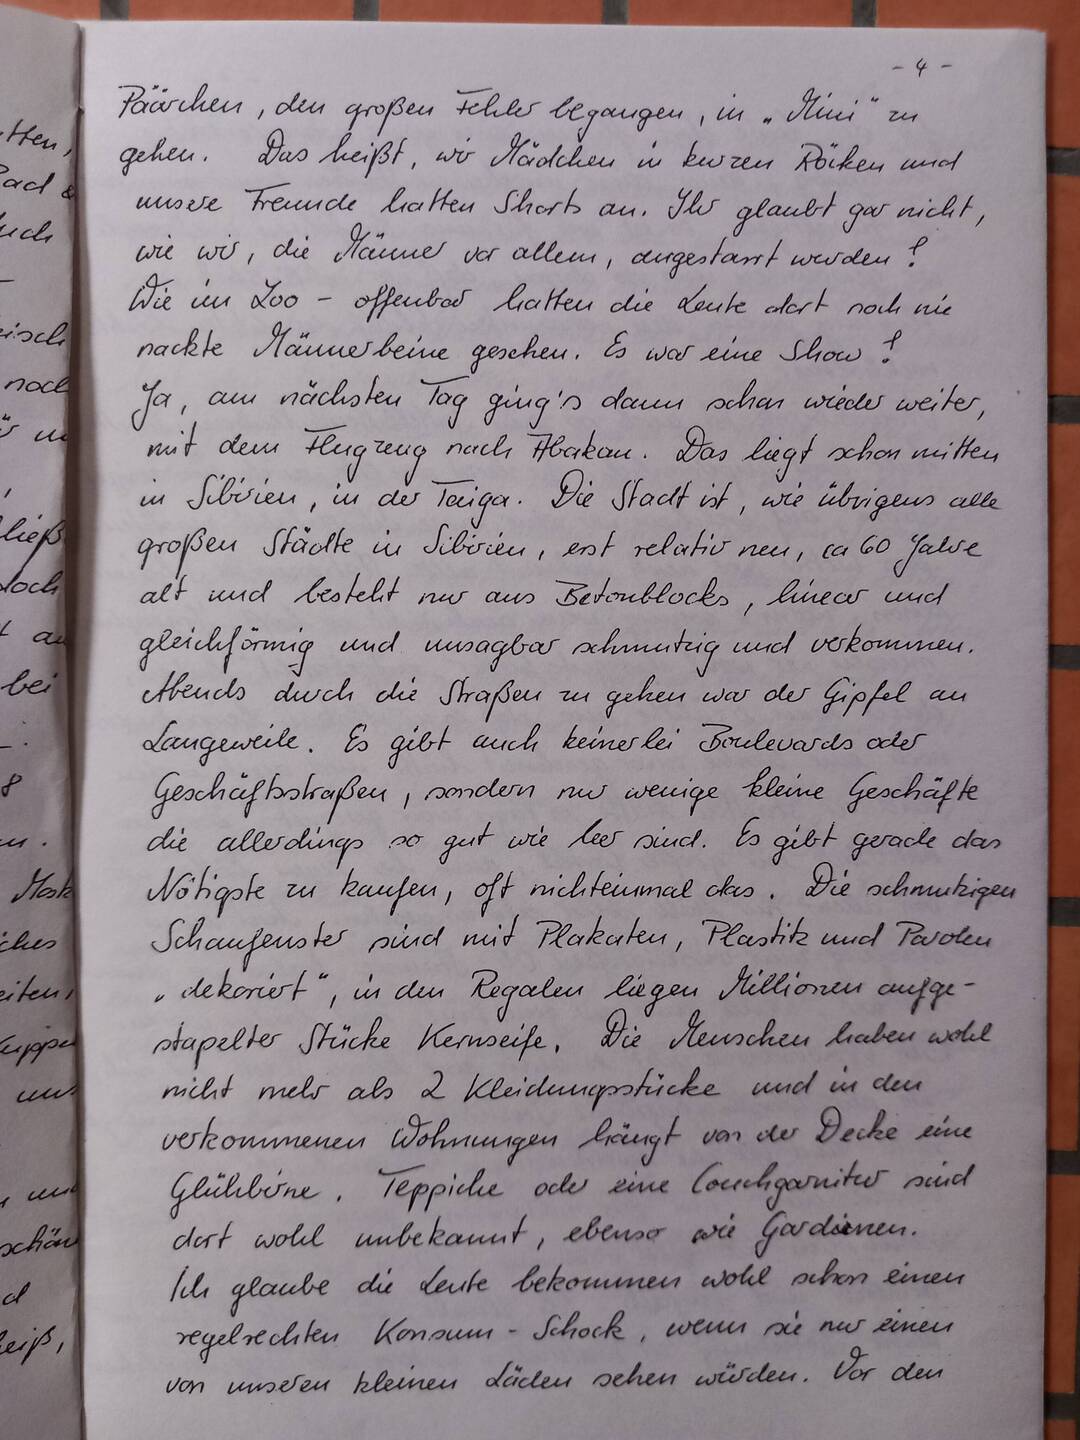 - 4 -
Päärchen, den großen Fehler begangen, in „Mini" zu
gehen. Das heißt, wir Mädchen in kurzen Röcken und
unsere Freunde hatten Shorts an. Ihr glaubt gar nicht,
wie wir, die Männer vor allem, angestarrt wurden!
Wie im Zoo - offenbar hatten die Leute dort noch nie
nackte Männerbeine gesehen. Es war eine Show!
Ja, am nächsten Tag ging's dann schon wieder weiter,
mit dem Flugzeug nach Abakan. Das liegt schon mitten
in Sibirien, in der Taiga. Die Stadt ist, wie übrigens alle
großen Städte in Sibirien, erst relativ neu, ca 60 Jahre
alt und besteht nur aus Betonblocks, linear und
gleichförmig und unsagbar schmutzig und verkommen.
Abends durch die Straßen zu gehen war der Gipfel an
Langeweile. Es gibt auch keinerlei Boulevards oder
Geschäftsstraßen, sondern nur wenige kleine Geschäfte
die allerdings so gut wie leer sind. Es gibt gerade das
Nötigste zu kaufen, oft nichteinmal das. Die schmutzigen
Schaufenster sind mit Plakaten, Plastik und Parolen
„dekoriert", in den Regalen liegen Millionen aufge-
stapelter Stücke Kernseife. Die Menschen haben wohl
nicht mehr als 2 Kleidungsstücke und in den
verkommenen Wohnungen hängt von der Decke eine
Glühbirne. Teppiche oder eine Couchgarnitur sind
dort wohl unbekannt, ebenso wie Gardienen.
Ich glaube die Leute bekommen wohl schon einen
regelrechten Konsum-Schock, wenn sie nur einen
von unseren kleinen Läden sehen würden. Vor den